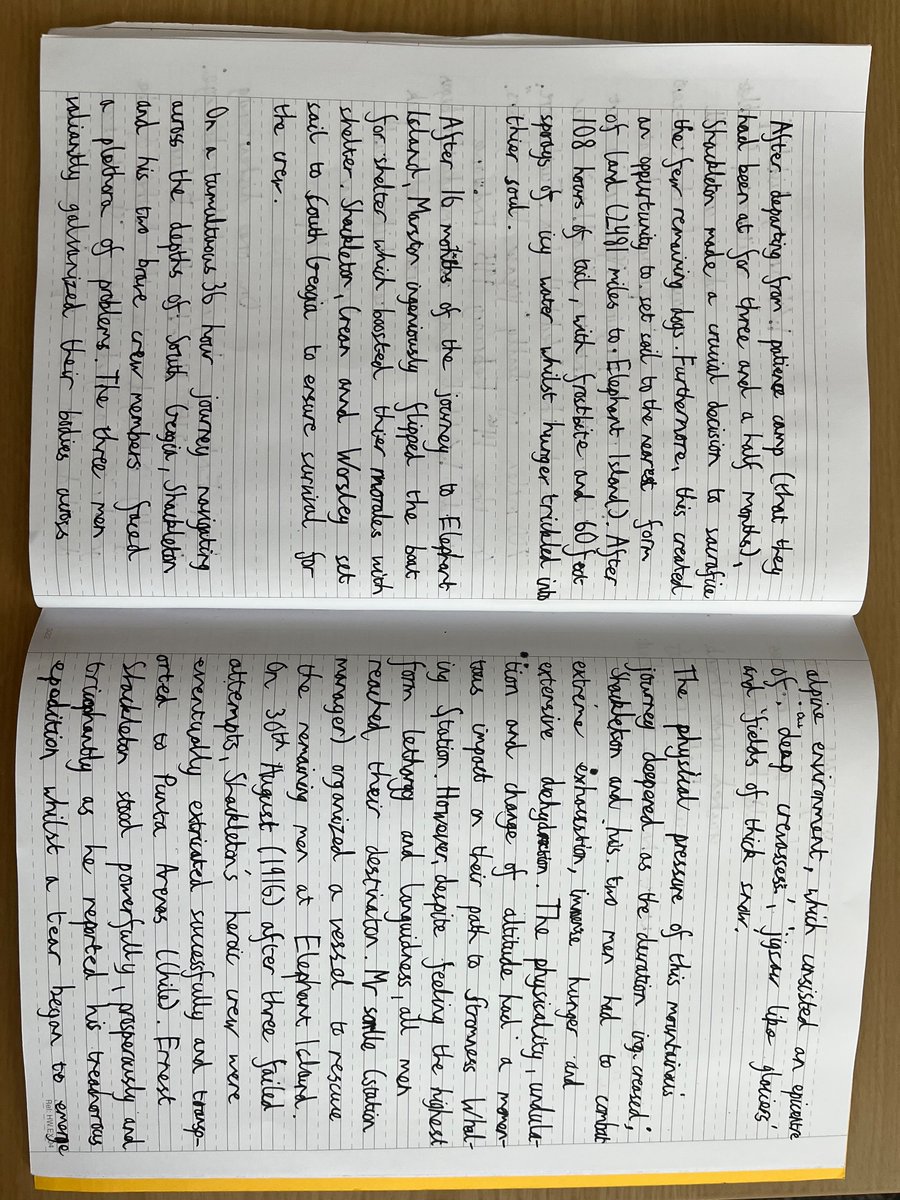 After departing from patience camp (that they
had been at for three and a half months),
Shackleton made a crucial decision to sacrafice
the few remaining dogs. Furthermore, this created
an oppurtunity to set sail to the nearest form
of land (2481 miles to Elephant Island). After
108 hours of toil, with frostbite and 60 feet
sprays of icy water whilst hunger trickled into
thier soul.
After 16 months of the journey to Elephant
Island, Marston ingeniously flipped the boat
for shelter which boosted thier morales with
shelter. Shackleton, Crean and Worsley set
sail to South Geogia to ensure survival for
the crew.
On a tumultuous 36 hour journey navigating
across the depths of South Geogia, Shackleton
and his two brave crew members faced
a plethora of problems. The three men
valiantly galvanized their bodies across
alpine environment, which consisted an epicentre
of deep crevasses, jigsaw like glaciers
and fields of thick snow.
The physical pressure of this mountuinous
journey deepened as the duration increased;
Shackleton and his two men had to combat
extreme exhaustion, immense hunger and
extensive dehydration. The physicality, undula-
tion and change of altitude had a momen-
tous impact on their path to Stromness Whal-
ing Station. However, despite feeling the highest
form lethargy and languidness, all men
reached their destination. Mr (station
manager) organized a vessel to rescue
the remaining men at Elephant Island.
On 30th August (1916) after three failed
attempts, Shackleton's heroic crew were
eventually extricated successfully and transp-
orted to Punta Arenas (Chile). Ernest
Shackleton stood powerfully, prosperously and
triumphantly as he reported his treahorous
expedition whilst a tear began to emerge